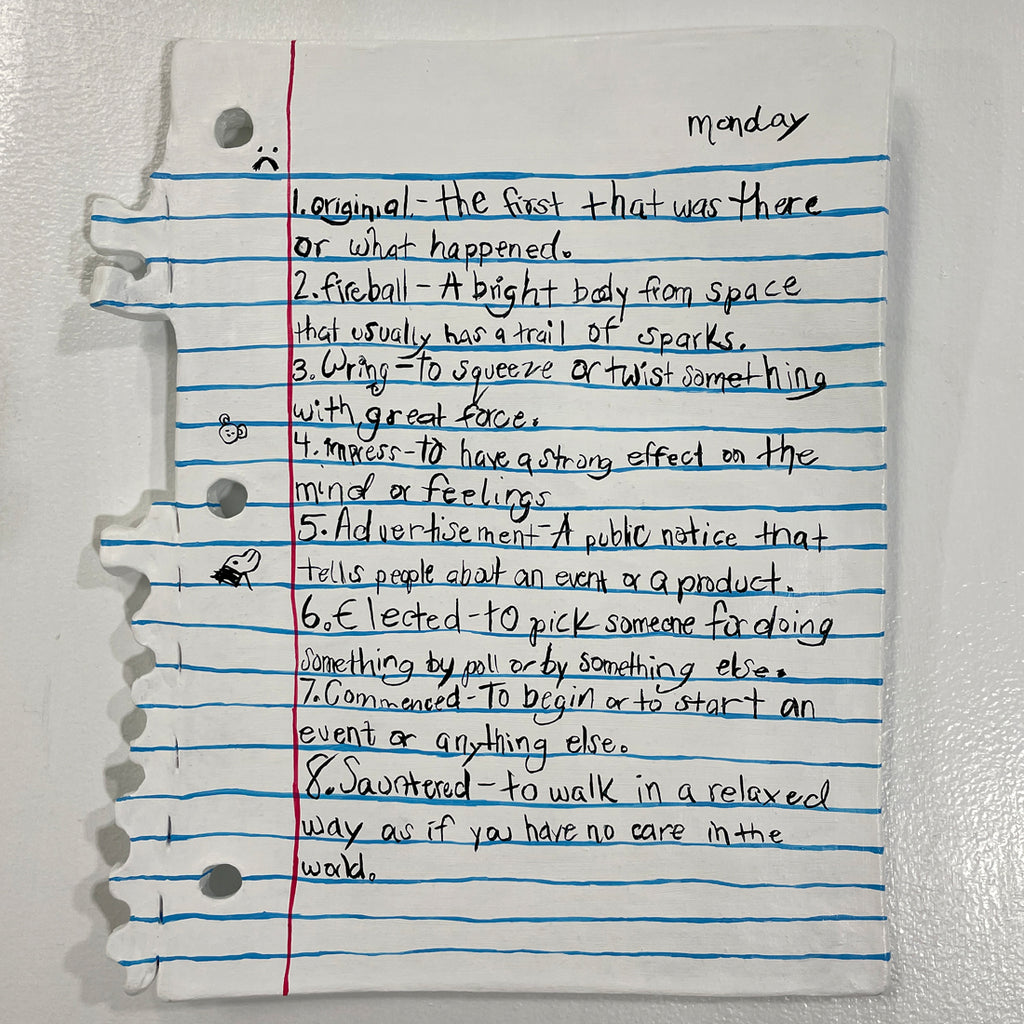 monday
1. originial.- the first that was there
or what happened.
2. fireball - A bright body from space
that usually has a trail of sparks.
3. Wring - to squeeze or twist something
with great force.
4. impress - to have a strong effect on the
mind or feelings
5. Advertisement - A public notice that
tells people about an event or a product.
6. Elected - to pick someone for doing
something by poll or by something else.
7. Commenced - To begin or to start an
event or anything else.
8. Sauntered - to walk in a relaxed
way as if you have no care in the
world.